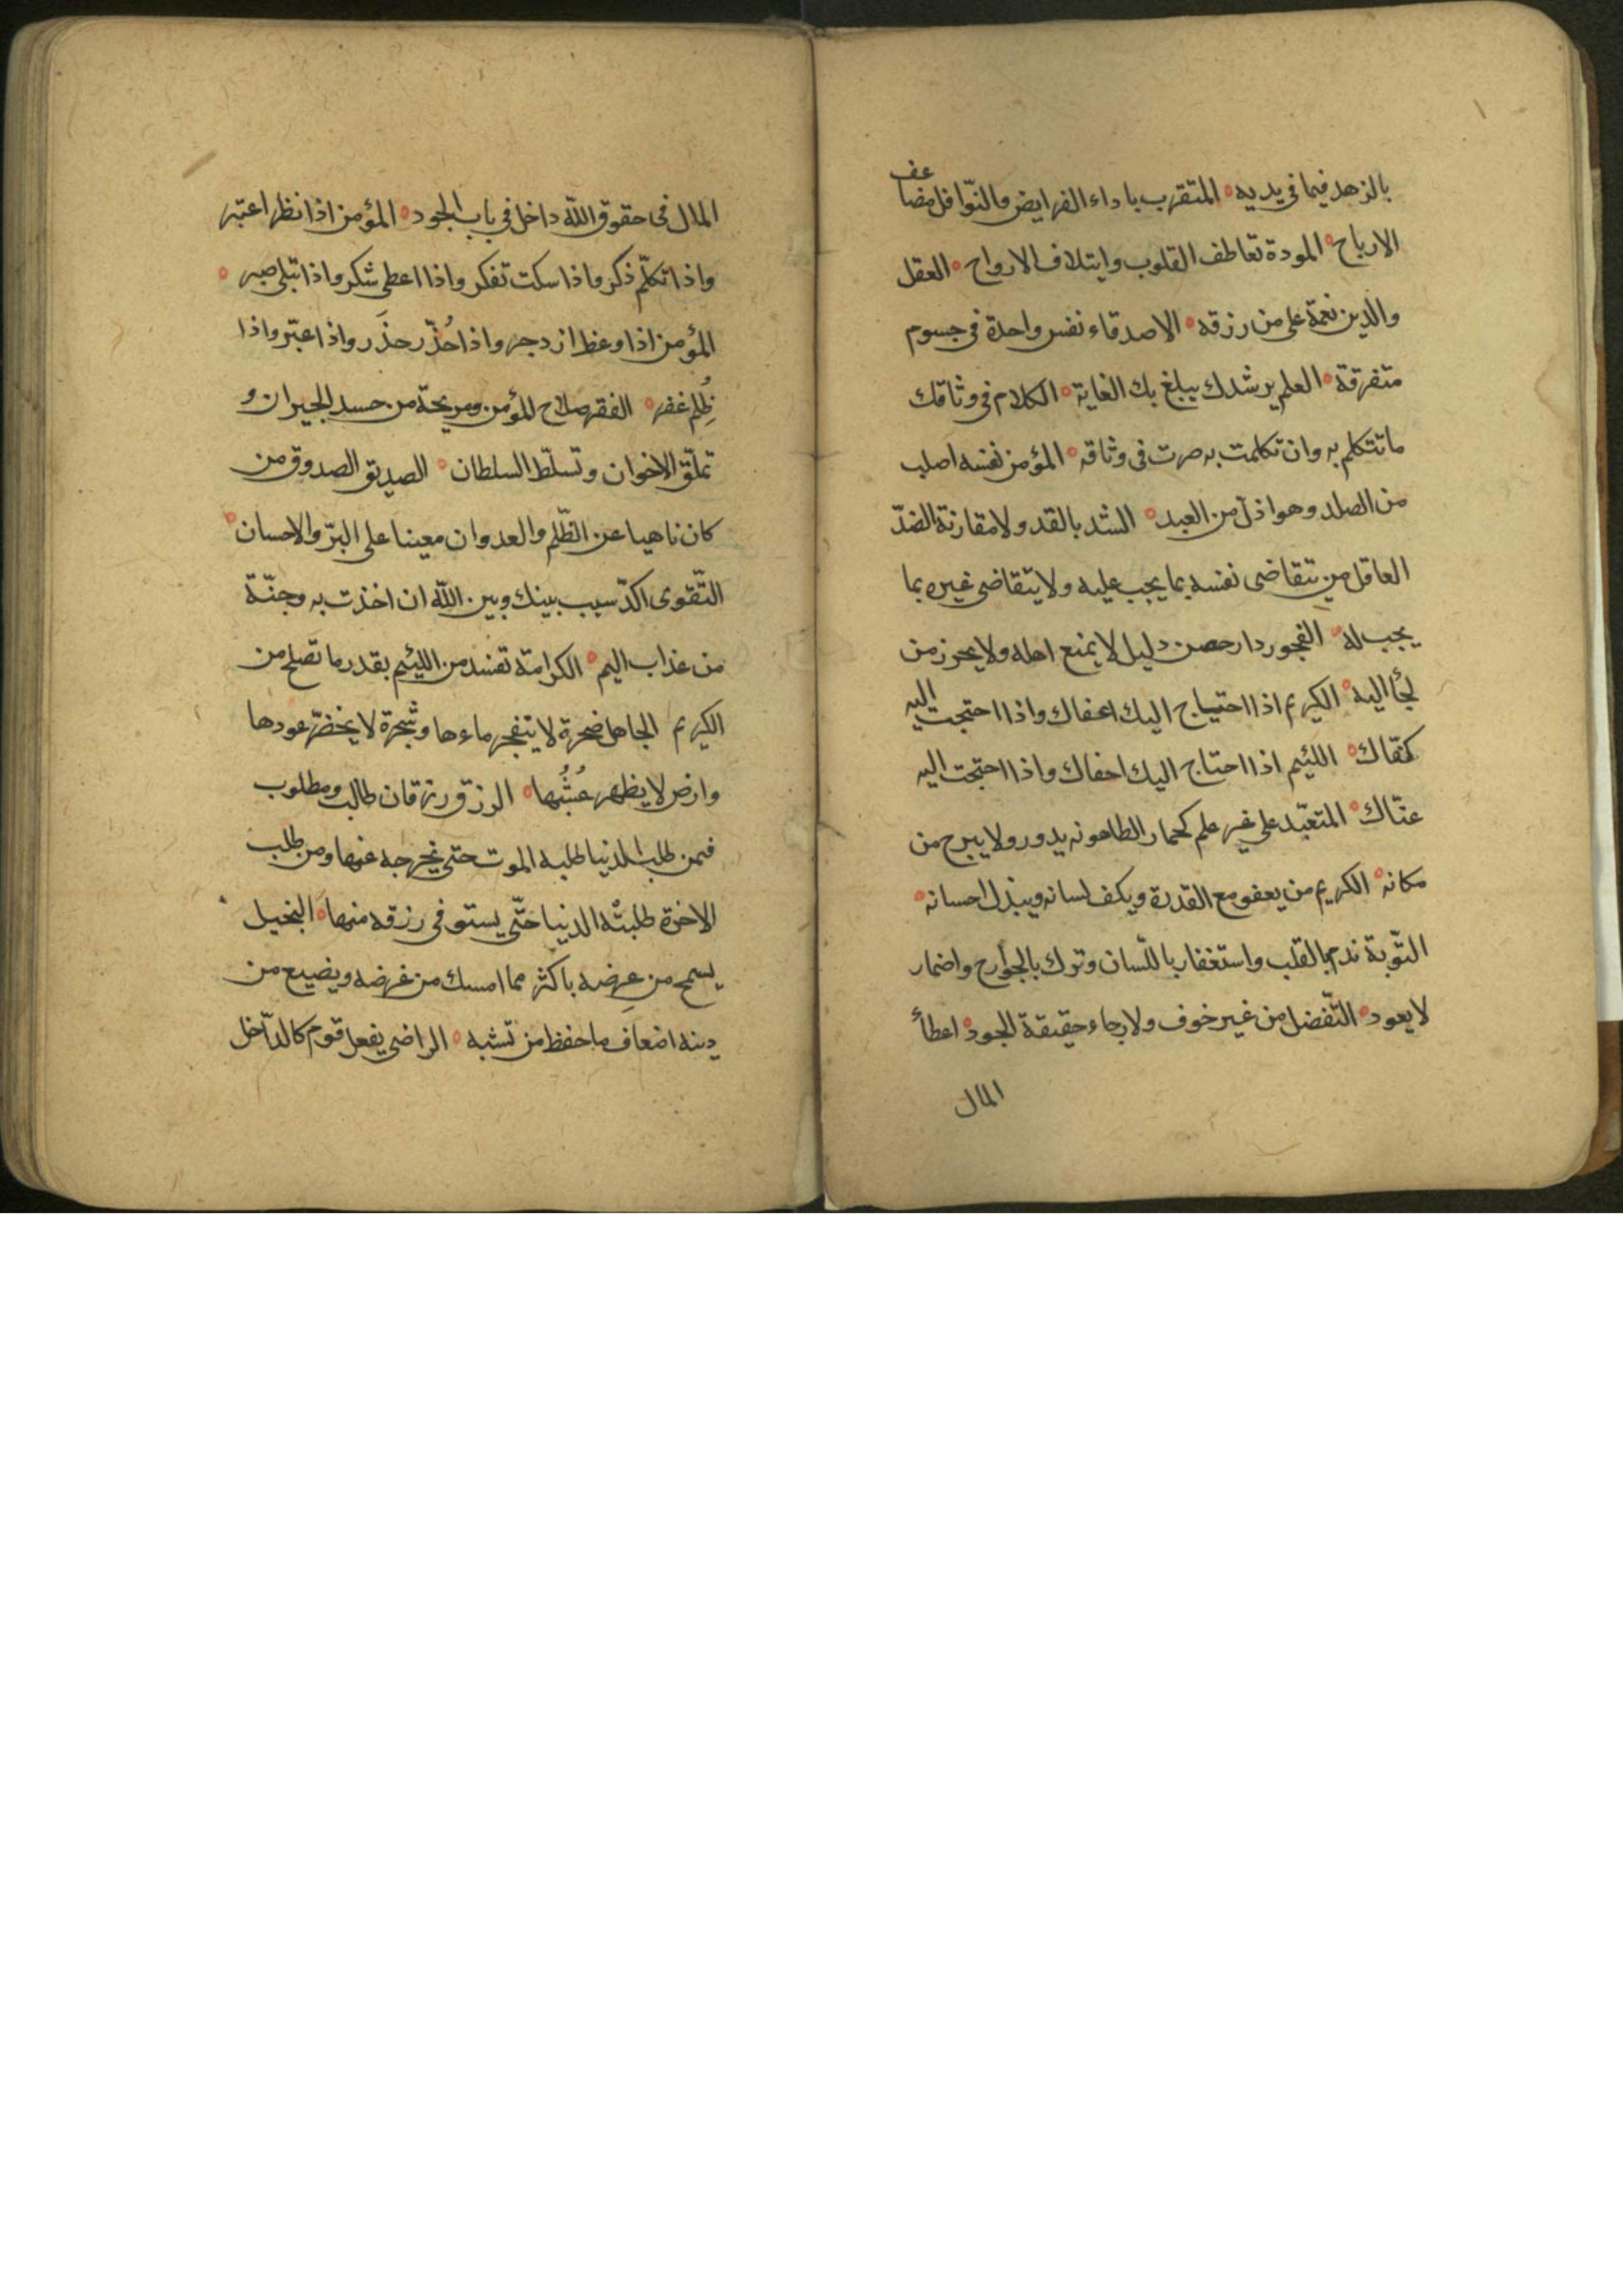 بالزهد فيما في يديه المتقرب باداء الفرايض والنّوافل مضاعف
الارباح المودة تعاطف القلوب وايتلاف الارواح العقل
والدين نعمة على من رزقه الاصدقاء نفس واحدة في جسوم
متفرقة العلم يرشدك يبلغ بك الغاية الكلام في وثاقك
ما تتكلم به وان تكلمت به صرت في وثاقه المؤمن نفسه اصلب
من الصلد وهو اذلّ من العبد الشد بالقد ولا مقارنة الضدّ
العاقل من تتقاضى نفسه بما يجب عليه ولا يتقاضى غيره بما
يجب له الفجور دار حصن دليل لا يمنع اهله ولا يحرز من
لجأ اليه الكريم اذا احتياج اليك اعفاك واذا احتجت اليه
كفّاك اللئيم اذا احتاج اليك احفاك واذا احتجت اليه
عنّاك المتعبّد على غير علم كحمار الطاحونه يدور ولا يبرح من
مكانه الكريم من يعفو مع القدرة ويكف لسانه ويبذل احسانه
التّوبة ندم بالقلب واستغفار باللّسان وترك بالجوارح واضمار
لا يعود التّفضل من غير خوف ولا رجاء حقيقة الجود اعطأ
المال
المال في حقوق اللّه داخل في باب الجود المؤمن اذا نظر اعتبر
واذا تكلّم ذكر واذا سكت تفكر واذا اعطى شكر واذا تبلى صبر
المؤمن اذا وعظ ازدجر واذا حُذّر حذَر واذا عبّر واذا
ظُلِم غفر الفقر صلاح للمؤمن ومريحة من حسد الجيران و
تملّق الاخوان وتسلّط السلطان الصديق الصدوق من
كان ناهيا عن الظّلم والعدوان معينا على البرّ والاحسان
التّقوى اكدّ سبب بينك وبين اللّه ان اخذت به وجنّة
من عذاب اليم الكرامة تفسد من اللئيم بقدر ما تصلح من
الكريم الجاهل صخرة لا يتفجر ماءها وشجرة لا يخضرّ عودها
وارض لا يظهر عُشُبها الرزق رزقان طالب ومطلوب
فمن طلب الدنيا طلبه الموت حتى يخرجه عنها ومن طلب
الاخرة طلبتْه الدنيا حتّى يستوفى رزقه منها البخيل
يسمح من عِرضه باكثر مما امسك من غرضه ويضيع من
دينه اضعاف ما حفظ من تشبه الراضى بفعل قوم كالدّاخل